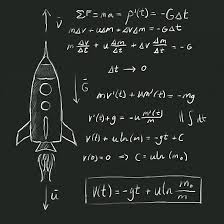 v⃗
ΣF = ma = p'(t) = -GΔt
mΔv + uΔm + ΔvΔm = -GΔt
m Δv/Δt + u Δm/Δt + Δv Δm/Δt = -G
Δt → 0
G⃗
mv'(t) + um'(t) = -mg
v'(t) + g = -u m'(t)/m
v(t) + u ln(m) = -gt + C
v(0) = 0 ⇒ C = u ln(m₀)
u⃗
v(t) = -gt + u ln m₀/m